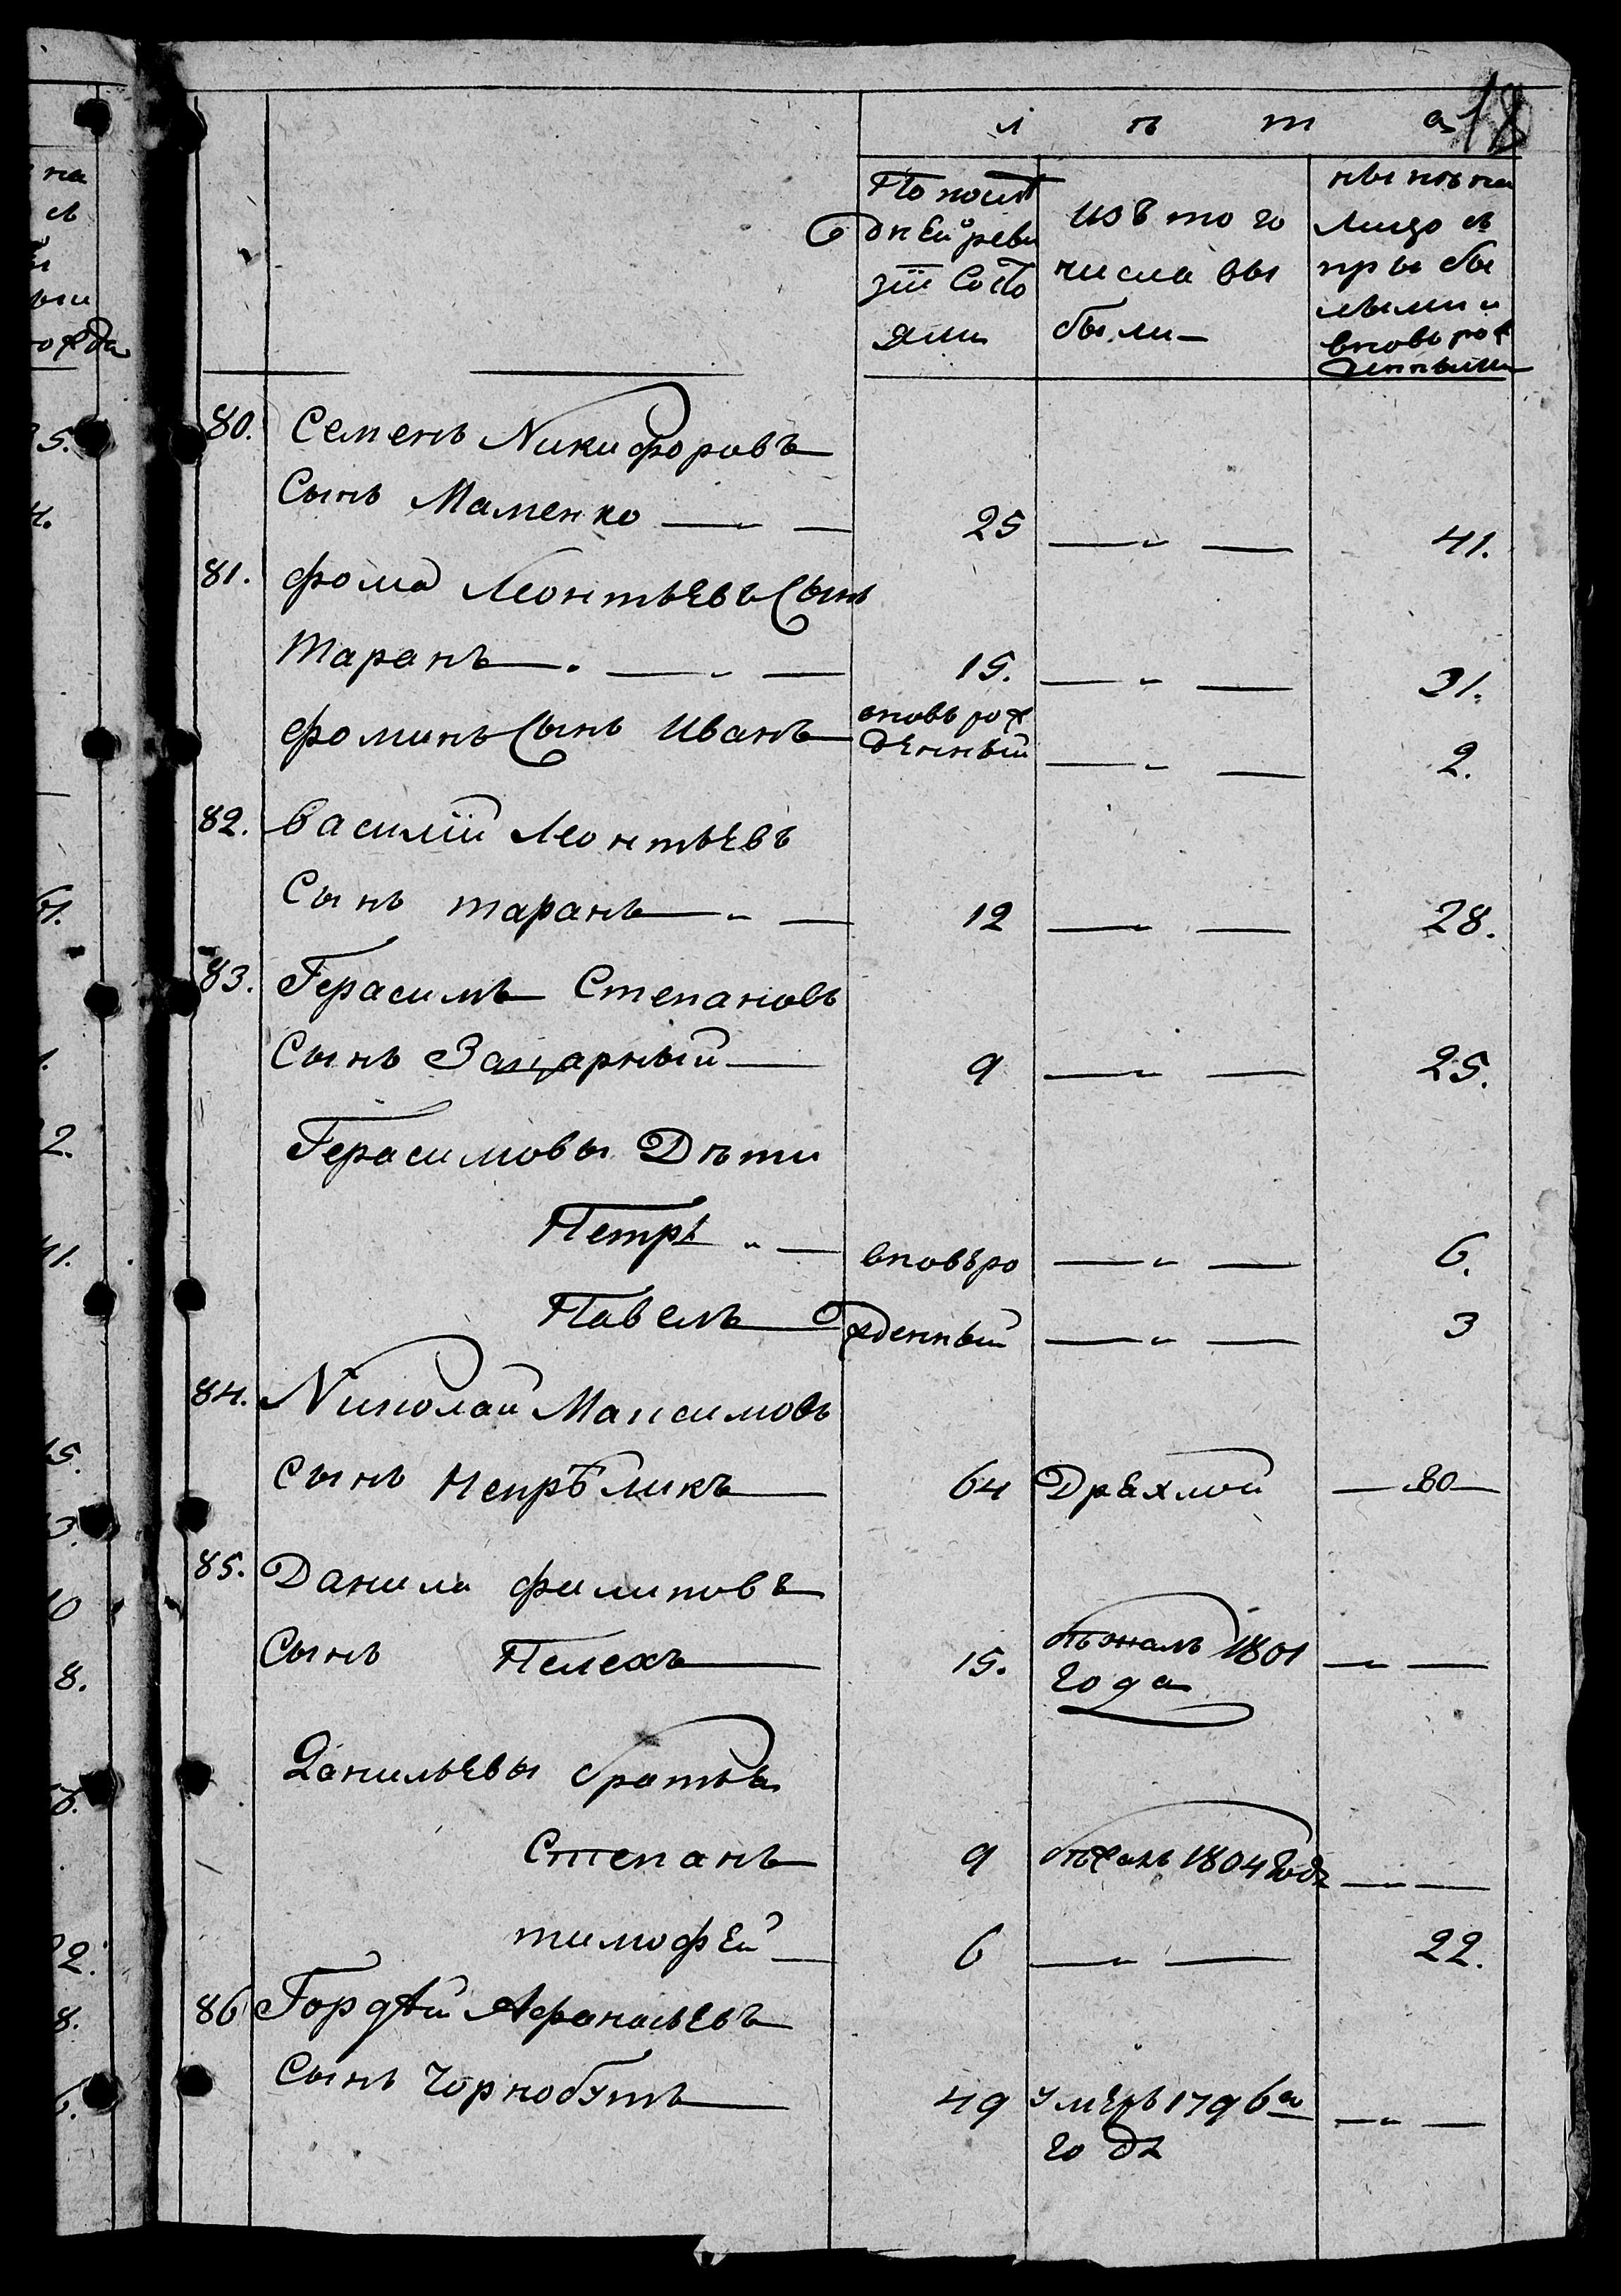 л ѣ т а 18
По послѣ
дней реви
зїи Состо
яли
изъ того
числа вы
были
нынѣ на
лицо съ
прибы
лыми и
вновь рож
денными
80. Семенъ Никифоровъ
Сынъ Маменко 25 41.
81. Фома Леонтьевъ Сынъ
Таранъ 15. 31.
Фоминъ Сынъ Иванъ вновь рож
денный 2.
82. Василїй Леонтьевъ
Сынъ таранъ 12 28.
83. Герасимъ Степановъ
Сынъ Зацарный 9 25.
Герасимовы Дѣти
Петръ вновь ро 6.
Павелъ жденный 3
84. Николай Максимовъ
Сынъ 64 Дряхлой 80
85. Данила Филиповъ
Сынъ Пелехъ 15. бѣжалъ 1801
года
Данильевы братья
Степанъ 9 бѣжалъ 1804 года
тимофей 6 22.
86 Гордѣй Афанасьевъ
Сынъ Чорнобувъ 49 умеръ 1796го
года